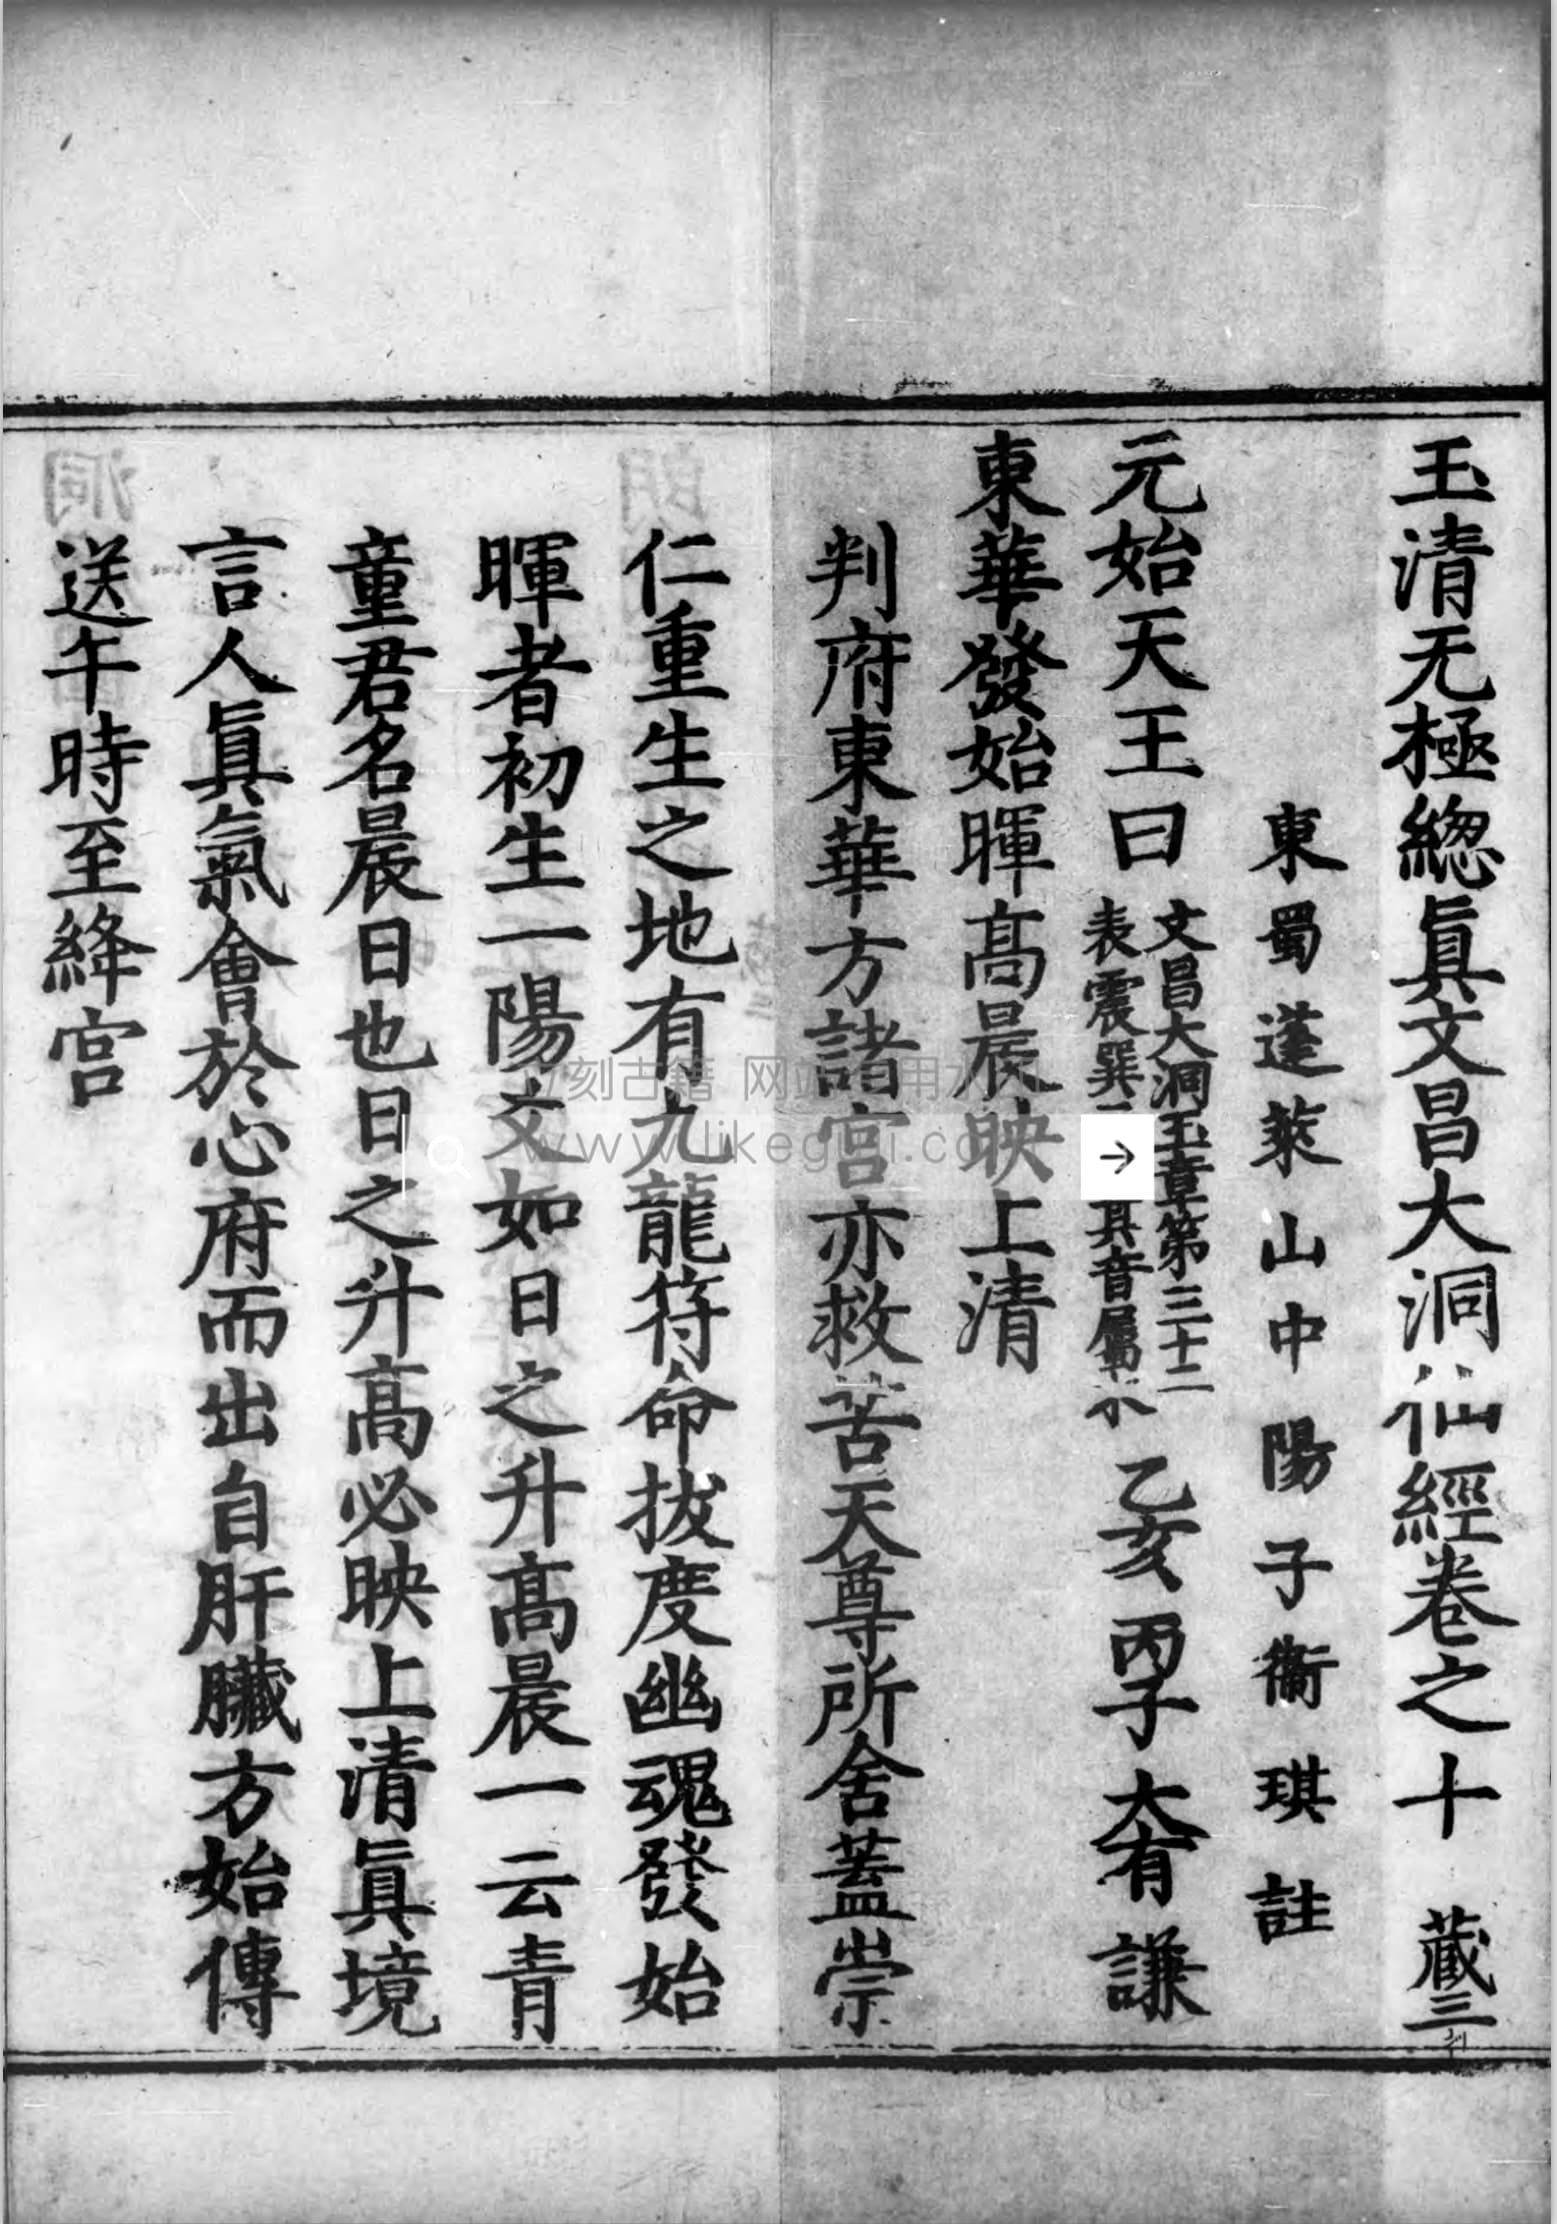 玉清无極緫眞文昌大洞仙經卷之十 藏三
東蜀蓬萊山中陽子衞琪註
元始天王曰 文昌大洞玉章第三十二
表震巽 其音屬水 乙亥丙子大有謙
東華發始暉髙晨映上清
判府東華方諸宮亦救苦天尊所舍蓋崇
仁重生之地有九龍符命拔度幽魂發始
暉者初生一陽文如日之升髙晨一云青
童君名晨日也日之升髙必映上清眞境
言人眞氣會於心府而出自肝臟方始傳
送午時至絳宮
刻古籍 网站 用水